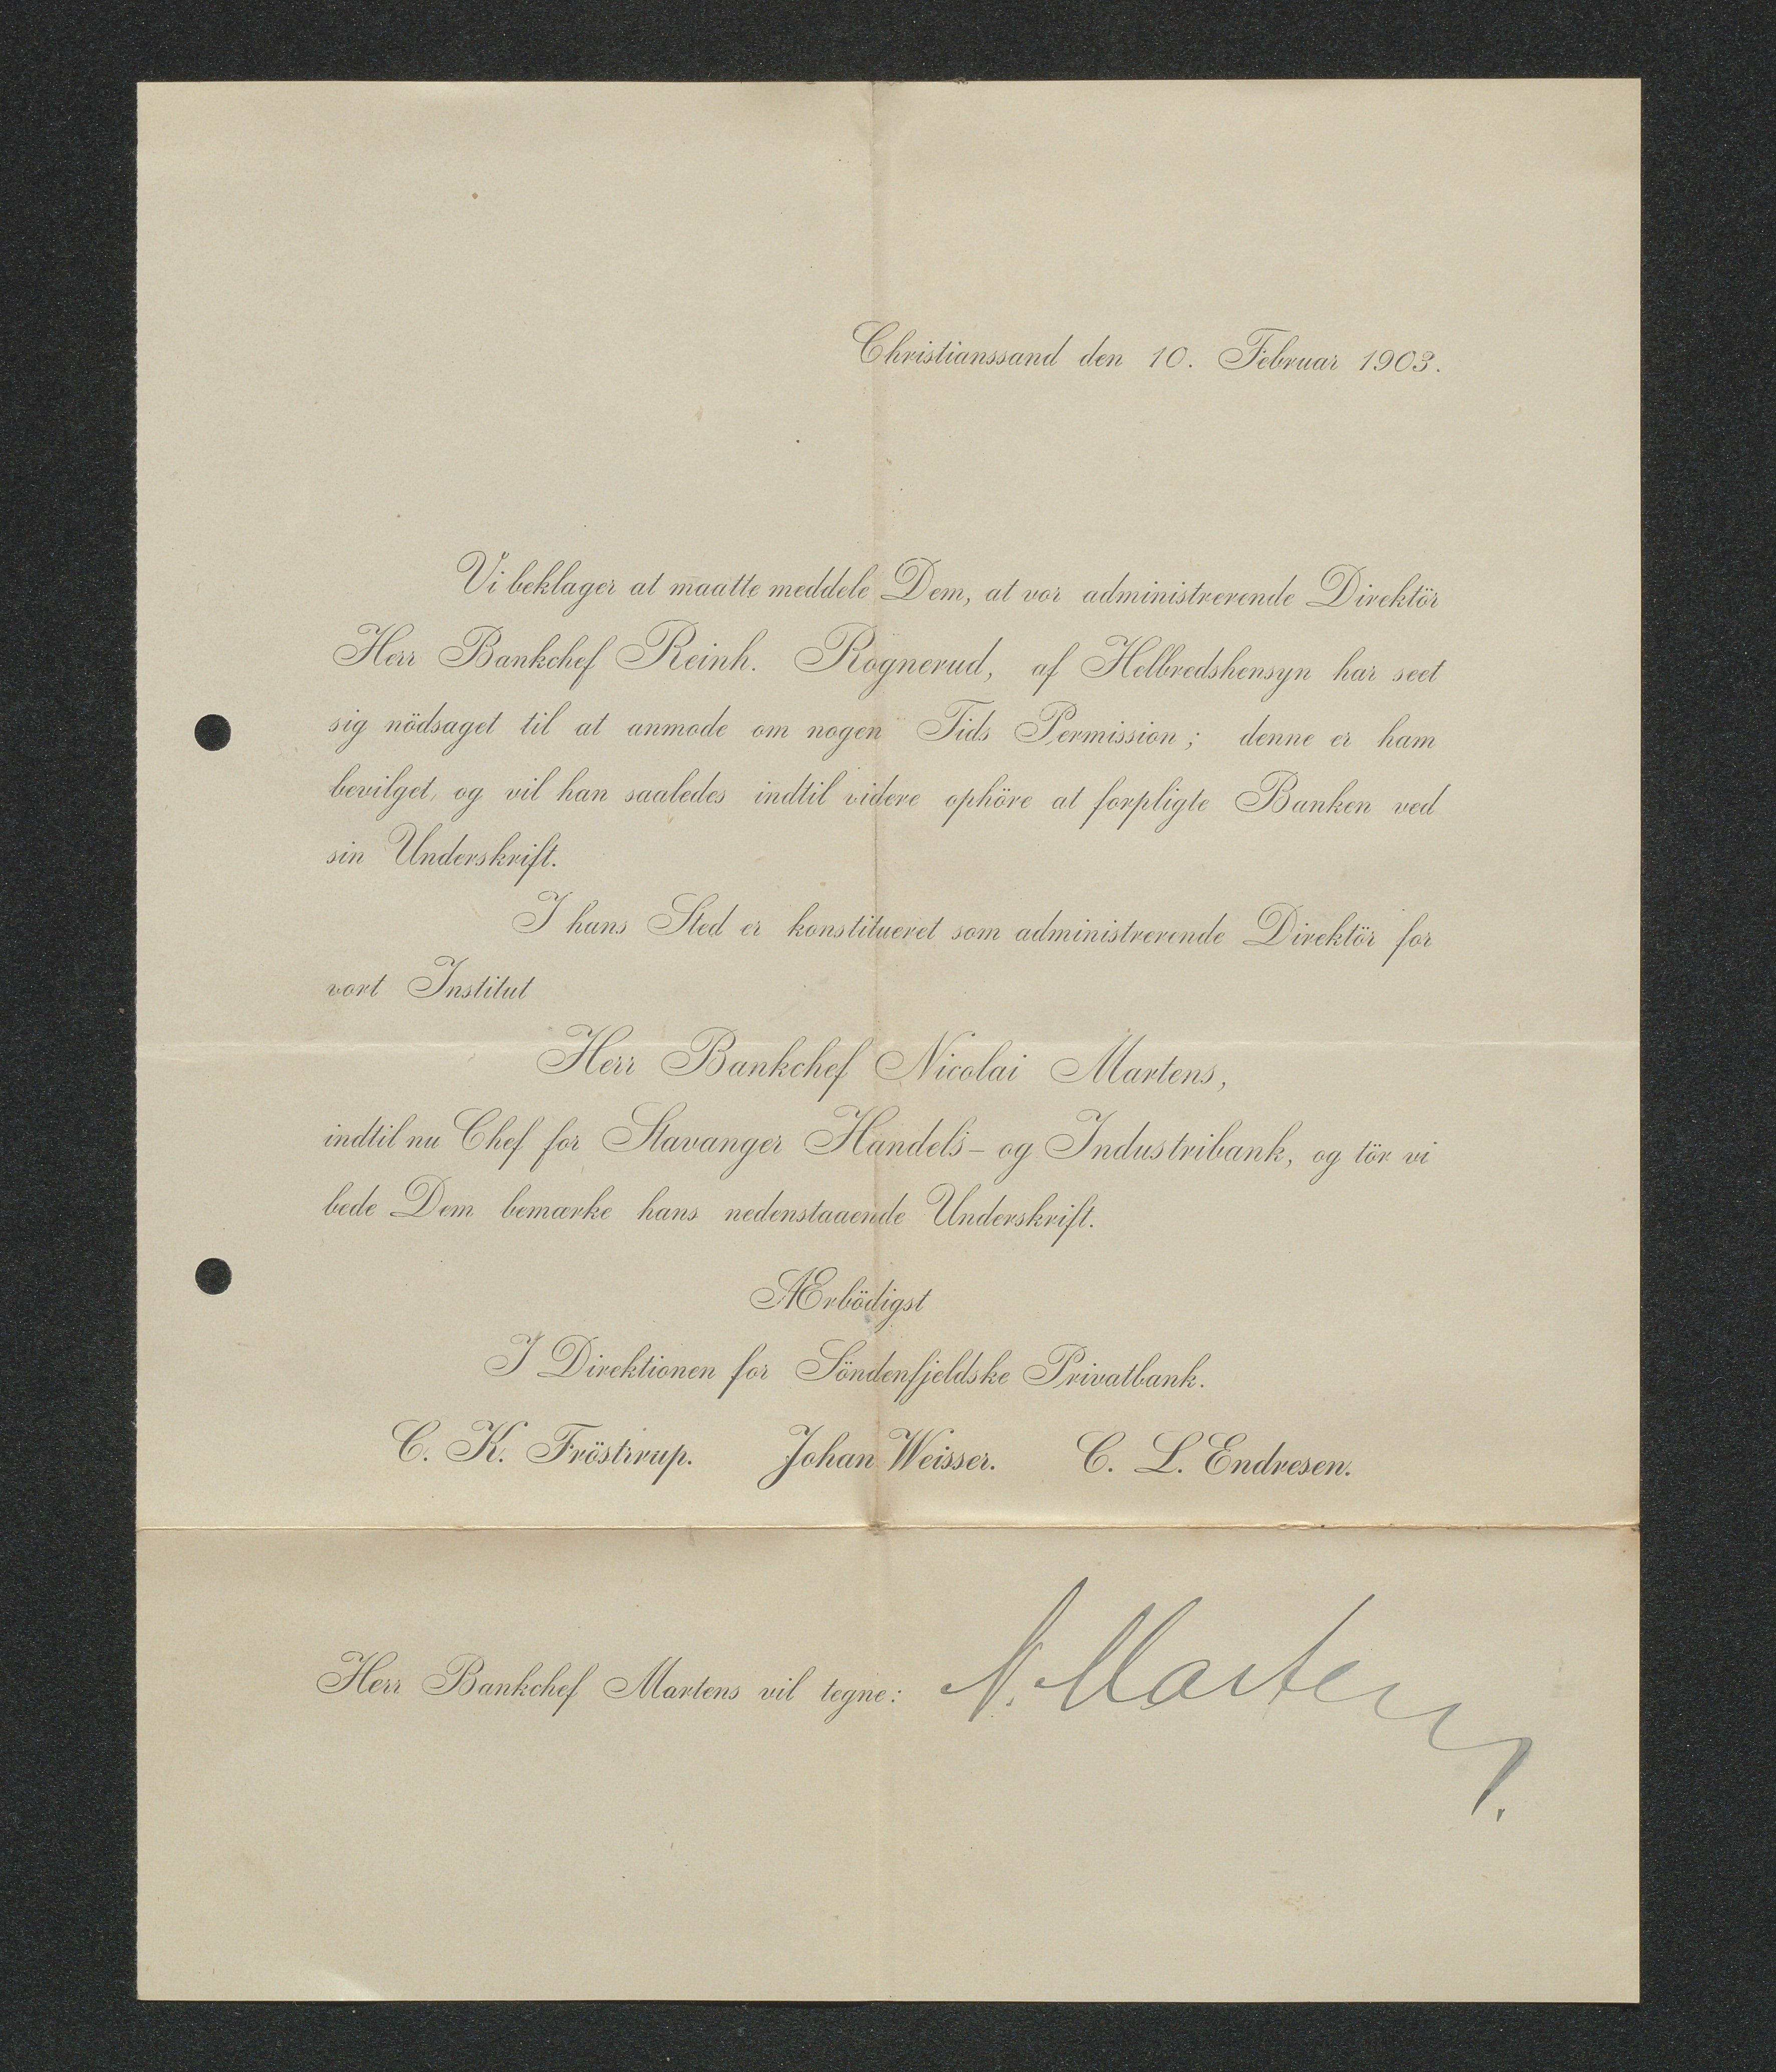 Christianssand den 10. Februar 1903.
Vi beklager at maatte meddele Dem, at vor administrerende Direktör
Herr Bankchef Reinh. Rognerud, af Helbredshensyn har seet
sig nödsaget til at anmode om nogen Tids Permission; denne er ham
bevilget, og vil han saaledes indtil videre ophöre at forpligte Banken ved
sin Underskrift.
I hans Sted er konstitueret som administrerende Direktör for
vort Institut
Herr Bankchef Nicolai Martens,
indtil nu Chef for Stavanger Handels- og Industribank, og tör vi
bede Dem bemærke hans nedenstaaende Underskrift.
Ærbödigst
I Direktionen for Söndenfjeldske Privatbank.
C. K. Fröstrup. Johan Weisser. C. L. Endresen.
Herr Bankchef Martens vil tegne: N. Martens.